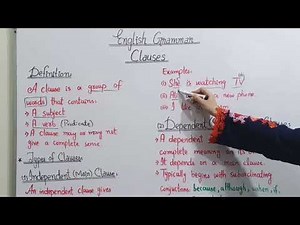 English Grammar
Clauses
Definition
A clause is a group of
words that contains:
→ A subject
→ A verb (Predicate)
→ A clause may or may not
give a complete sense
Types of Clauses
(1) Independent (Main) Clause
An independent clause gives
Examples:
(i) She is watching TV
(ii) a new phone
(iii) I
(2) Dependent
A dependent
complete meaning
It depends on a main clause
Typically begins with subordinating
conjunctions because, although, when, if